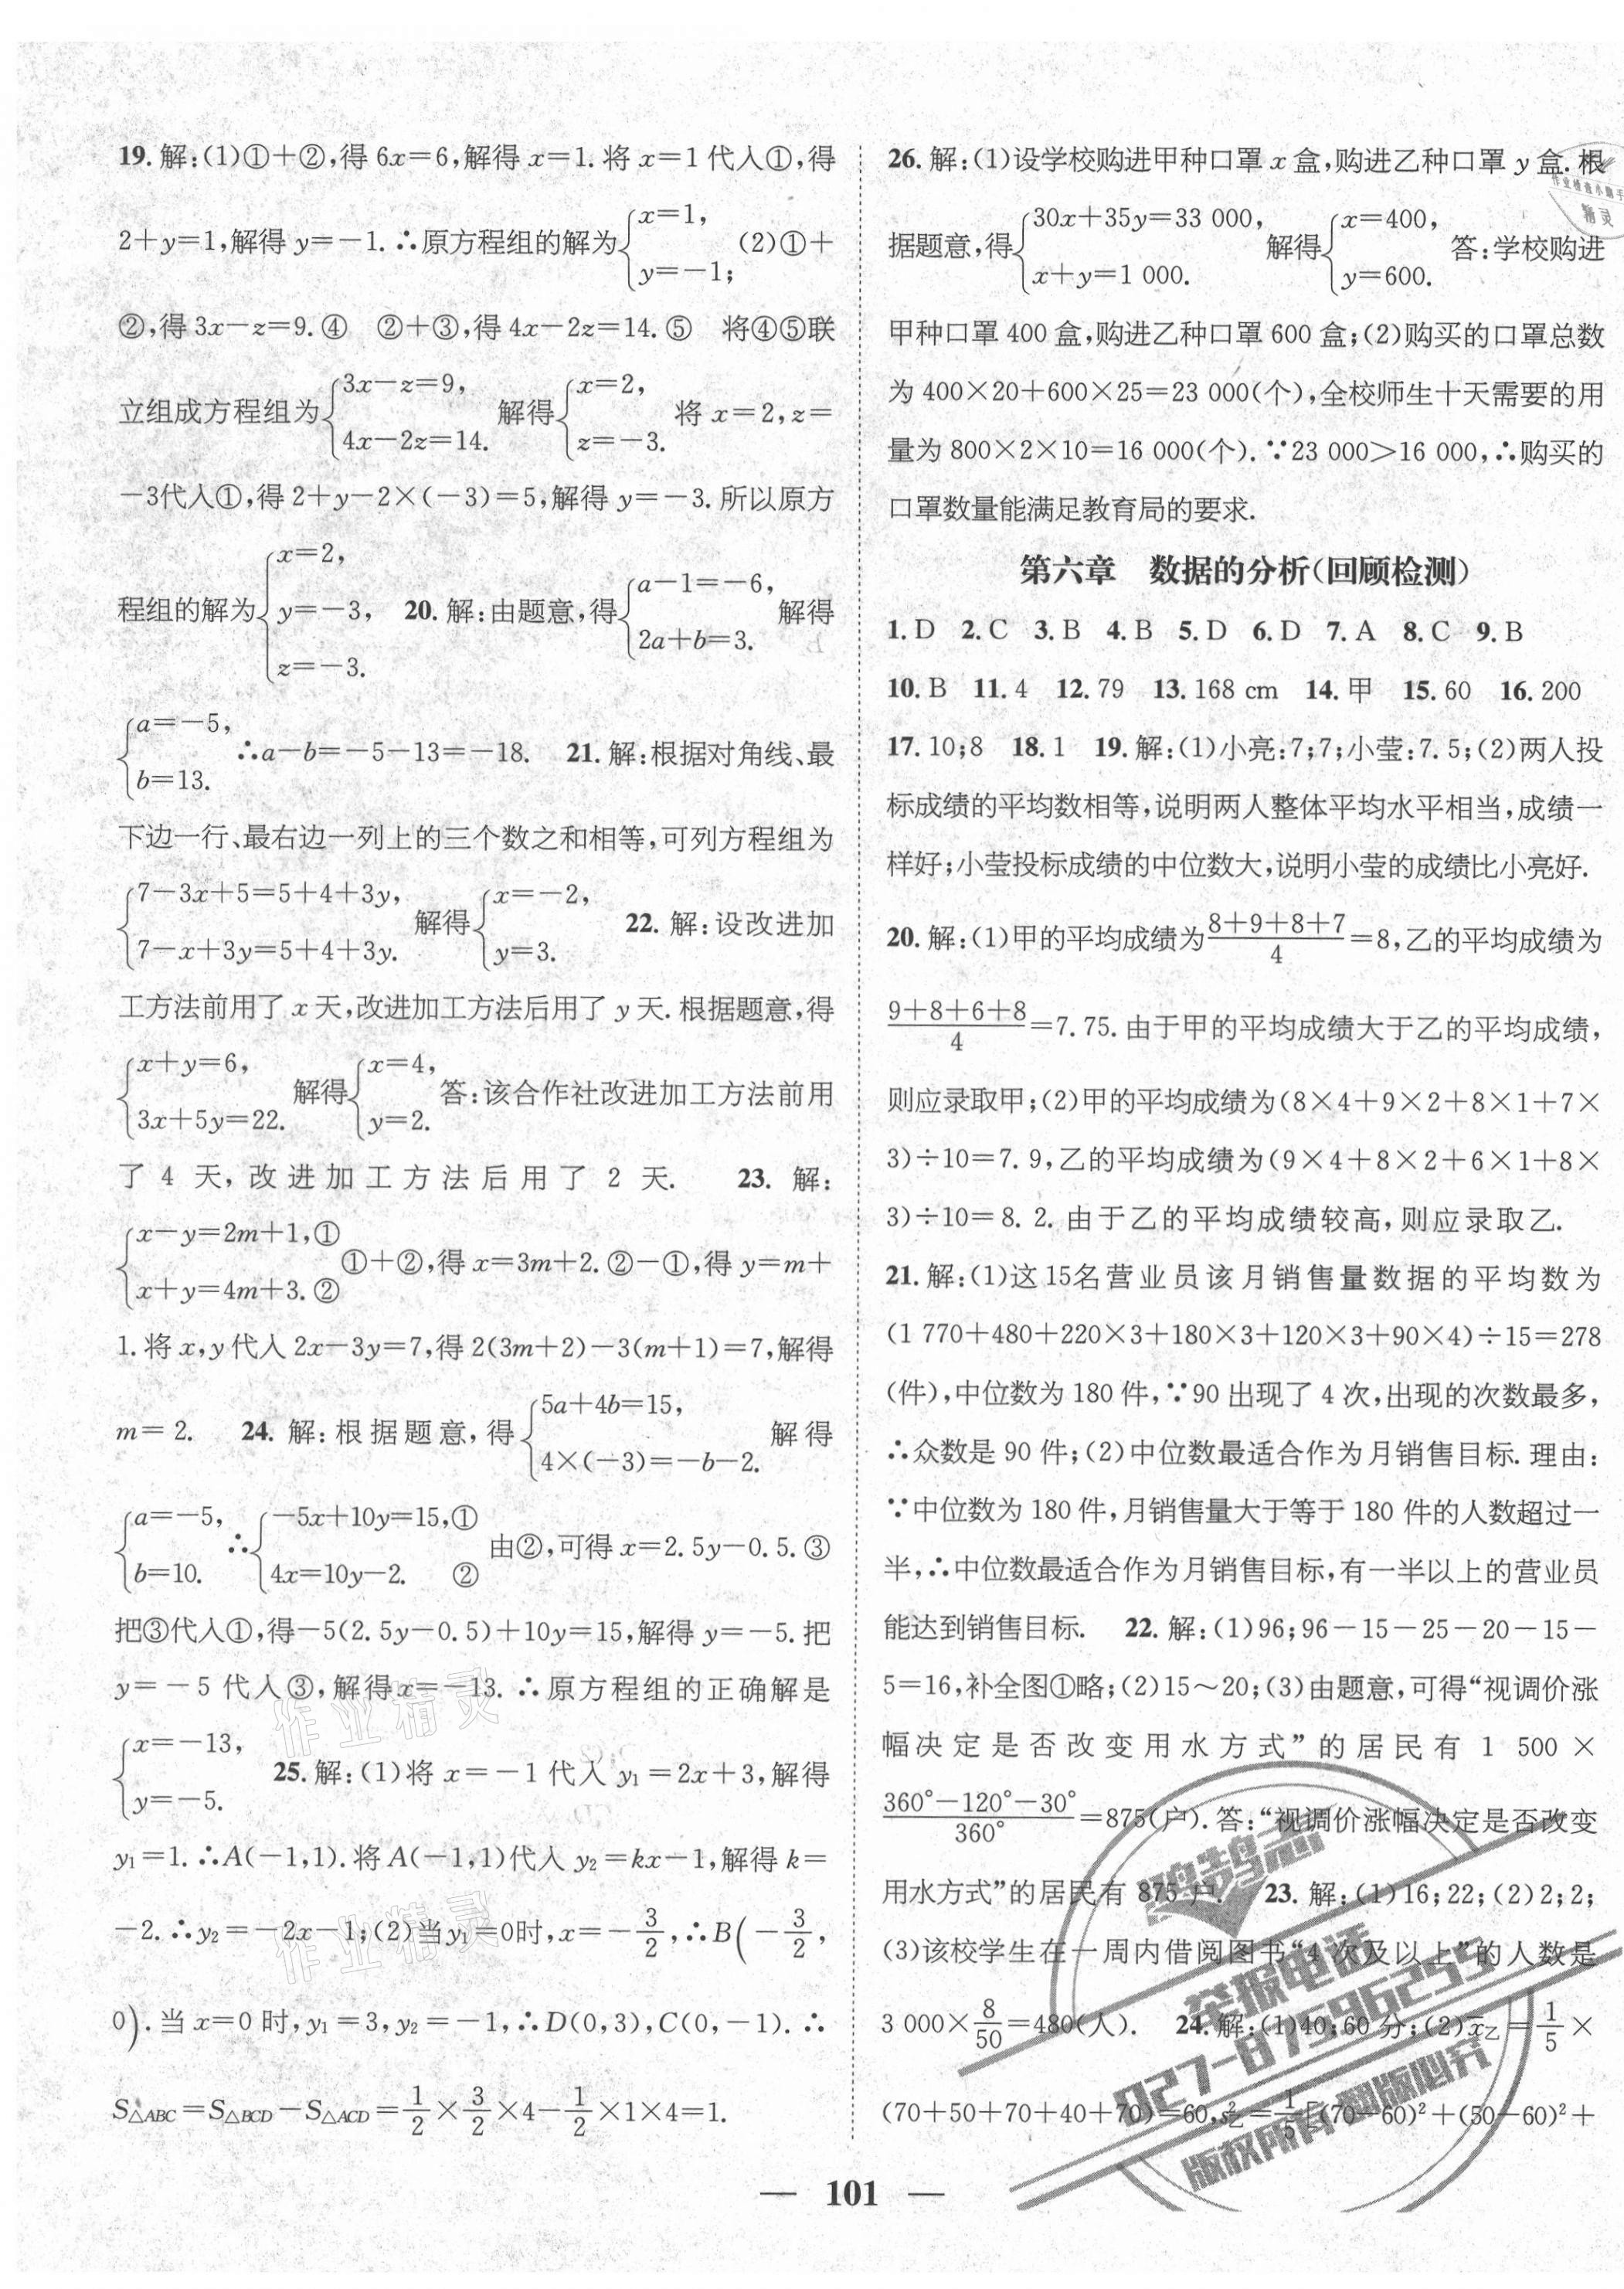 19. 解:(1)①+②,得 6x=6,解得 x=1. 将 x=1 代入①,得
2+y=1,解得 y=-1. ∴原方程组的解为{x=1, y=-1; (2)①+
②,得 3x-z=9. ④ ②+③,得 4x-2z=14. ⑤ 将④⑤联
立组成方程组为{3x-z=9, 4x-2z=14. 解得{x=2, z=-3. 将 x=2,z=
-3代入①,得 2+y-2×(-3)=5,解得 y=-3. 所以原方
程组的解为{x=2, y=-3, z=-3. 20. 解:由题意,得{a-1=-6, 2a+b=3. 解得
{a=-5, b=13. ∴a-b=-5-13=-18. 21. 解:根据对角线、最
下边一行、最右边一列上的三个数之和相等,可列方程组为
{7-3x+5=5+4+3y, 7-x+3y=5+4+3y. 解得{x=-2, y=3. 22. 解:设改进加
工方法前用了 x 天,改进加工方法后用了 y 天. 根据题意,得
{x+y=6, 3x+5y=22. 解得{x=4, y=2. 答:该合作社改进加工方法前用
了 4 天,改进加工方法后用了 2 天. 23. 解:
{x-y=2m+1,① x+y=4m+3.② ①+②,得 x=3m+2. ②-①,得 y=m+
1. 将 x,y 代入 2x-3y=7,得 2(3m+2)-3(m+1)=7,解得
m=2. 24. 解:根据题意,得{5a+4b=15, 4×(-3)=-b-2. 解得
{a=-5, b=10. ∴{-5x+10y=15,① 4x=10y-2. ② 由②,可得 x=2.5y-0.5. ③
把③代入①,得-5(2.5y-0.5)+10y=15,解得 y=-5. 把
y=-5 代入③,解得x=-13. ∴原方程组的正确解是
{x=-13, y=-5. 25. 解:(1)将 x=-1 代入 y₁=2x+3,解得
y₁=1. ∴A(-1,1). 将 A(-1,1)代入 y₂=kx-1,解得 k=
-2. ∴y₂=-2x-1;(2)当y₁=0时,x=-3/2,∴B(-3/2,
0). 当 x=0 时,y₁=3,y₂=-1,∴D(0,3),C(0,-1). ∴
S△ABC=S△BCD-S△ACD=1/2×3/2×4-1/2×1×4=1.
26. 解:(1)设学校购进甲种口罩 x 盒,购进乙种口罩 y 盒. 根
据题意,得{30x+35y=33 000, x+y=1 000. 解得{x=400, y=600. 答:学校购进
甲种口罩 400 盒,购进乙种口罩 600 盒;(2)购买的口罩总数
为 400×20+600×25=23 000(个),全校师生十天需要的用
量为 800×2×10=16 000(个). ∵23 000>16 000,∴购买的
口罩数量能满足教育局的要求.
第六章 数据的分析(回顾检测)
1. D 2. C 3. B 4. B 5. D 6. D 7. A 8. C 9. B
10. B 11. 4 12. 79 13. 168 cm 14. 甲 15. 60 16. 200
17. 10;8 18. 1 19. 解:(1)小亮:7;7;小莹:7.5;(2)两人投
标成绩的平均数相等,说明两人整体平均水平相当,成绩一
样好;小莹投标成绩的中位数大,说明小莹的成绩比小亮好.
20. 解:(1)甲的平均成绩为(8+9+8+7)/4=8,乙的平均成绩为
(9+8+6+8)/4=7.75. 由于甲的平均成绩大于乙的平均成绩,
则应录取甲;(2)甲的平均成绩为(8×4+9×2+8×1+7×
3)÷10=7.9,乙的平均成绩为(9×4+8×2+6×1+8×
3)÷10=8.2. 由于乙的平均成绩较高,则应录取乙.
21. 解:(1)这15名营业员该月销售量数据的平均数为
(1 770+480+220×3+180×3+120×3+90×4)÷15=278
(件),中位数为 180 件,∵90 出现了 4 次,出现的次数最多,
∴众数是 90 件;(2)中位数最适合作为月销售目标. 理由:
∵中位数为 180 件,月销售量大于等于 180 件的人数超过一
半,∴中位数最适合作为月销售目标,有一半以上的营业员
能达到销售目标. 22. 解:(1)96;96-15-25-20-15-
5=16,补全图①略;(2)15~20;(3)由题意,可得“视调价涨
幅决定是否改变用水方式”的居民有 1 500×
(360°-120°-30°)/360°=875(户). 答:“视调价涨幅决定是否改变
用水方式”的居民有 875 户. 23. 解:(1)16;22;(2)2;2;
(3)该校学生在一周内借阅图书“4 次及以上”的人数是
3 000×8/50=480(人). 24. 解:(1)40;60 分;(2)x̄乙=1/5×
(70+50+70+40+70)=60,s²乙=1/5[(70-60)²+(50-60)²+
— 101 —
作业精灵
作业精灵
作业检查小助手
精灵
举报电话
027-87596255
版权所有 翻版必究